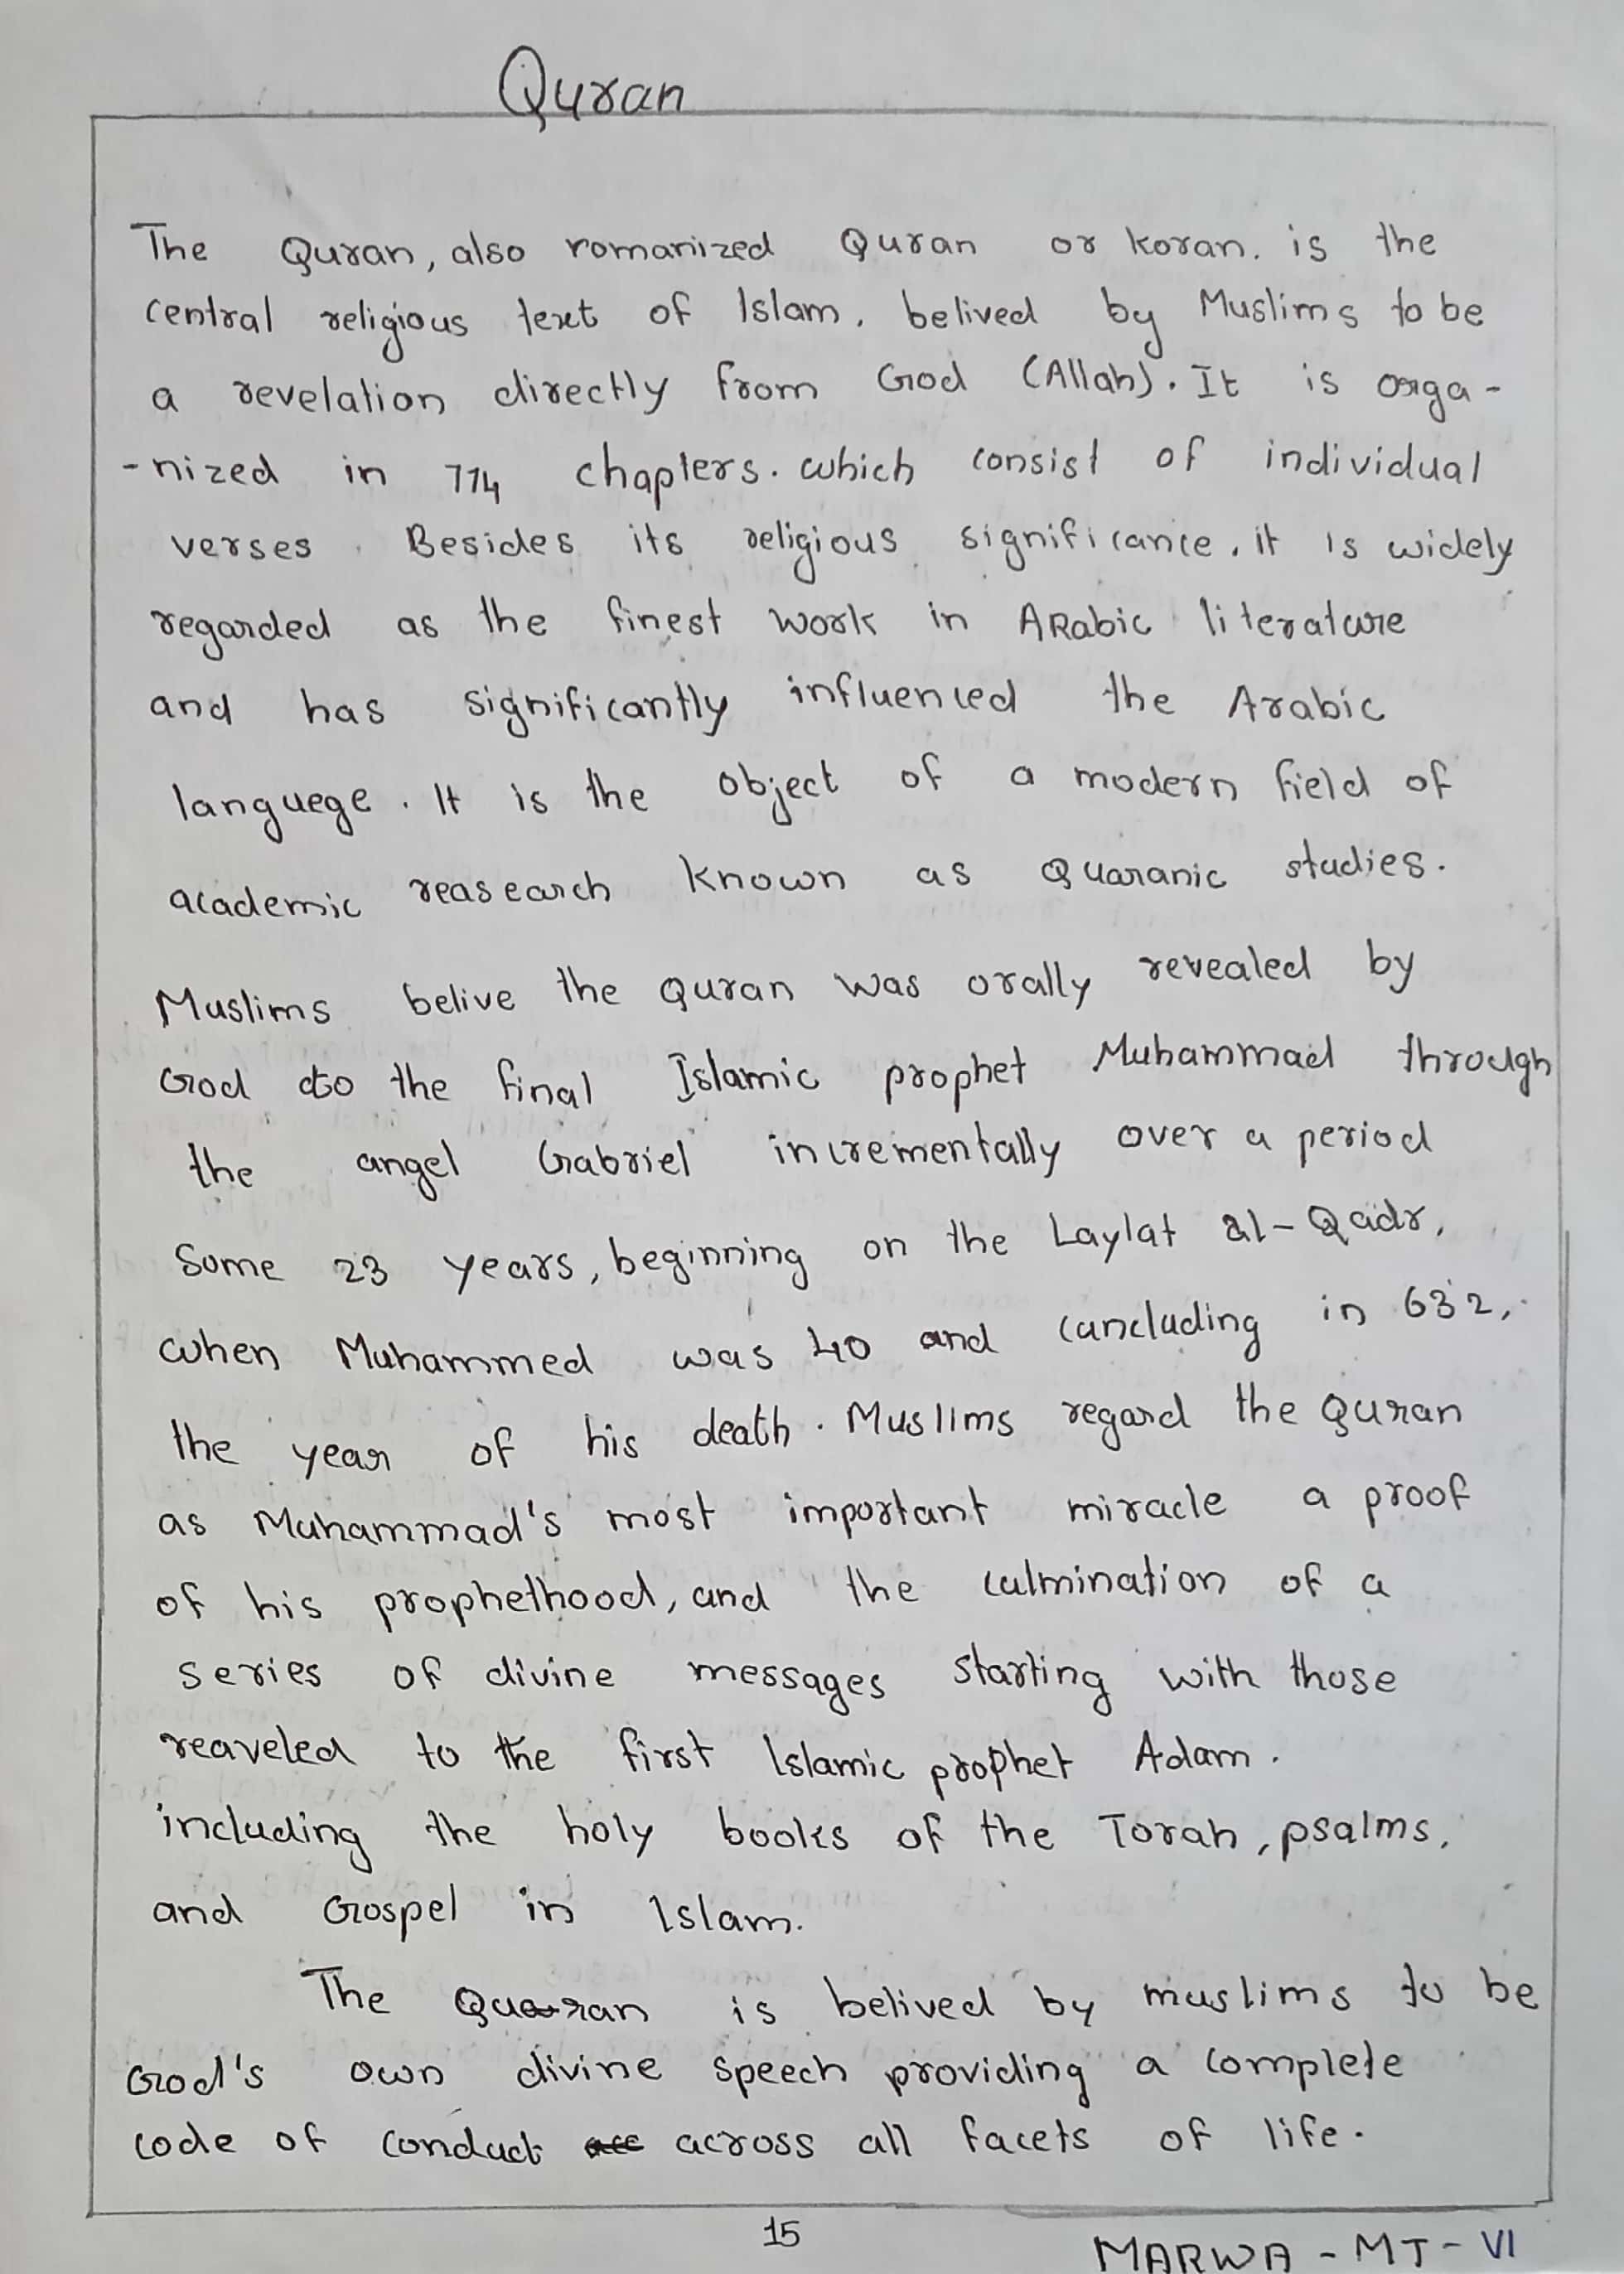 Quran
The Quran, also romanized Quran or Koran. is the
central religious text of Islam. belived by Muslims to be
a revelation directly from God (Allah). It is orga-
-nized in 114 chapters. which consist of individual
verses. Besides its religious significance, it is widely
regarded as the finest work in ARabic literature
and has significantly influenced the Arabic
languege. It is the object of a modern field of
academic reasearch known as Quaranic studies.
Muslims belive the Quran was orally revealed by
God to the final Islamic prophet Muhammad through
the angel Gabriel incrementally over a period
Some 23 years, beginning on the Laylat al-Qadr,
when Muhammed was 40 and cancluding in 632,
the year of his death. Muslims regard the Quran
as Muhammad's most important miracle a proof
of his prophethood, and the culmination of a
series of divine messages starting with those
reaveled to the first Islamic prophet Adam.
including the holy books of the Torah, psalms,
and Gospel in Islam.
The Quaran is belived by muslims to be
God's own divine speech providing a complete
code of conduct across all facets of life.
15
MARWA - MT - VI